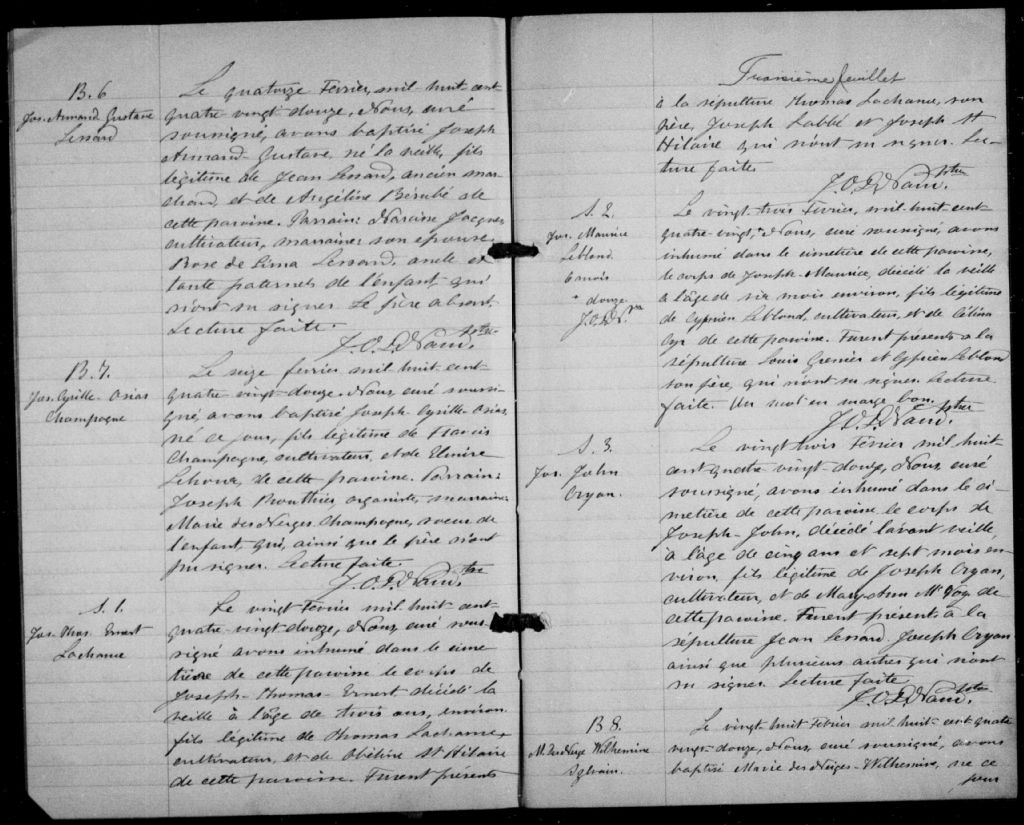 B. 6
Jos. Armand Gustave
Lessard
Le quatorze Février, mil-huit-cent
quatre vingt-douze, Nous, curé
soussigné, avons baptisé Joseph
Armand-Gustave, né la veille, fils
légitime de Jean Lessard, ancien mar-
chand, et de Angéline Bérubé de
cette paroisse. Parrain: Narcisse Jacques
cultivateur, marraine: son epouse
Rose de Lima Lessard, oncle et
tante paternels de l'enfant qui
n'ont su signer. Le père absent.
Lecture faite.
J.O.D. Naud. Ptre
B. 7.
Jos. Cyrille-Osias
Champagne
Le seize février mil huit-cent-
quatre vingt-douze, Nous, curé soussi-
gné, avons baptisé Joseph-Cyrille-Osias,
né ce jour, fils légitime de Francis
Champagne, cultivateur, et de Elmire
de cette paroisse. Parrain:
Joseph Routhier, organiste, marraine
Marie des Neiges Champagne, soeur de
l'enfant, qui, ainsi que le père n'ont
pu signer. Lecture faite.
J.O.D. Naud. Ptre
S. 1.
Jos. Thos. Ernest
Lachance
Le vingt Février mil huit-cent-
quatre-vingt douze, Nous, curé sous-
signé avons inhumé dans le cime
tière de cette paroisse le corps de
Joseph-Thomas-Ernest décédé la
veille à l'âge de trois ans, environ
fils légitime de Thomas Lachance,
cultivateur, et de Obéline St Hilaire
de cette paroisse. Furent présents
Troisième feuillet
à la sépulture Thomas Lachance, son
père, Joseph Labbé et Joseph St
Hilaire qui n'ont su signer. Lec-
ture faite.
J.O.D. Naud. Ptre
S. 2.
Jos. Maurice
Leblond
6 mois
* douze.
J.O.D.N. Ptre
Le vingt-trois Février, mil-huit-cent-
quatre-vingt,* Nous, curé soussigné, avons
inhumé dans le cimetière de cette paroisse,
le corps de Joseph-Maurice, décédé la veille
à l'âge de six mois environ, fils légitime
de Cyprien Leblond, cultivateur, et de Célina
Cyr de cette paroisse. Furent présents à la
sépulture Louis Grenier et Cyprien Leblond
son père, qui n'ont su signer. Lecture
faite. Un mot en marge bon.
J.O.D. Naud. Ptre
S. 3.
Jos. John
Cryan.
Le vingt trois Février mil huit-
cent-quatre-vingt-douze, Nous, curé
soussigné, avons inhumé dans le ci-
metière de cette paroisse le corps de
Joseph-John, décédé l'avant veille,
à l'âge de cinq ans et sept mois en-
viron, fils légitime de Joseph Cryan,
cultivateur, et de Mary-Ann de
cette paroisse. Furent présents à la
sépulture Jean Lessard, Joseph Cryan
ainsi que plusieurs autres qui n'ont
su signer. Lecture faite
J.O.D. Naud. Ptre
B 8.
M. des Neige Wilhemine
Sylvain.
Le vingt huit Février mil huit-cent quatre
vingt-douze, Nous, curé soussigné, avons
baptisé Marie des Neiges-Wilhemine, née ce
jour